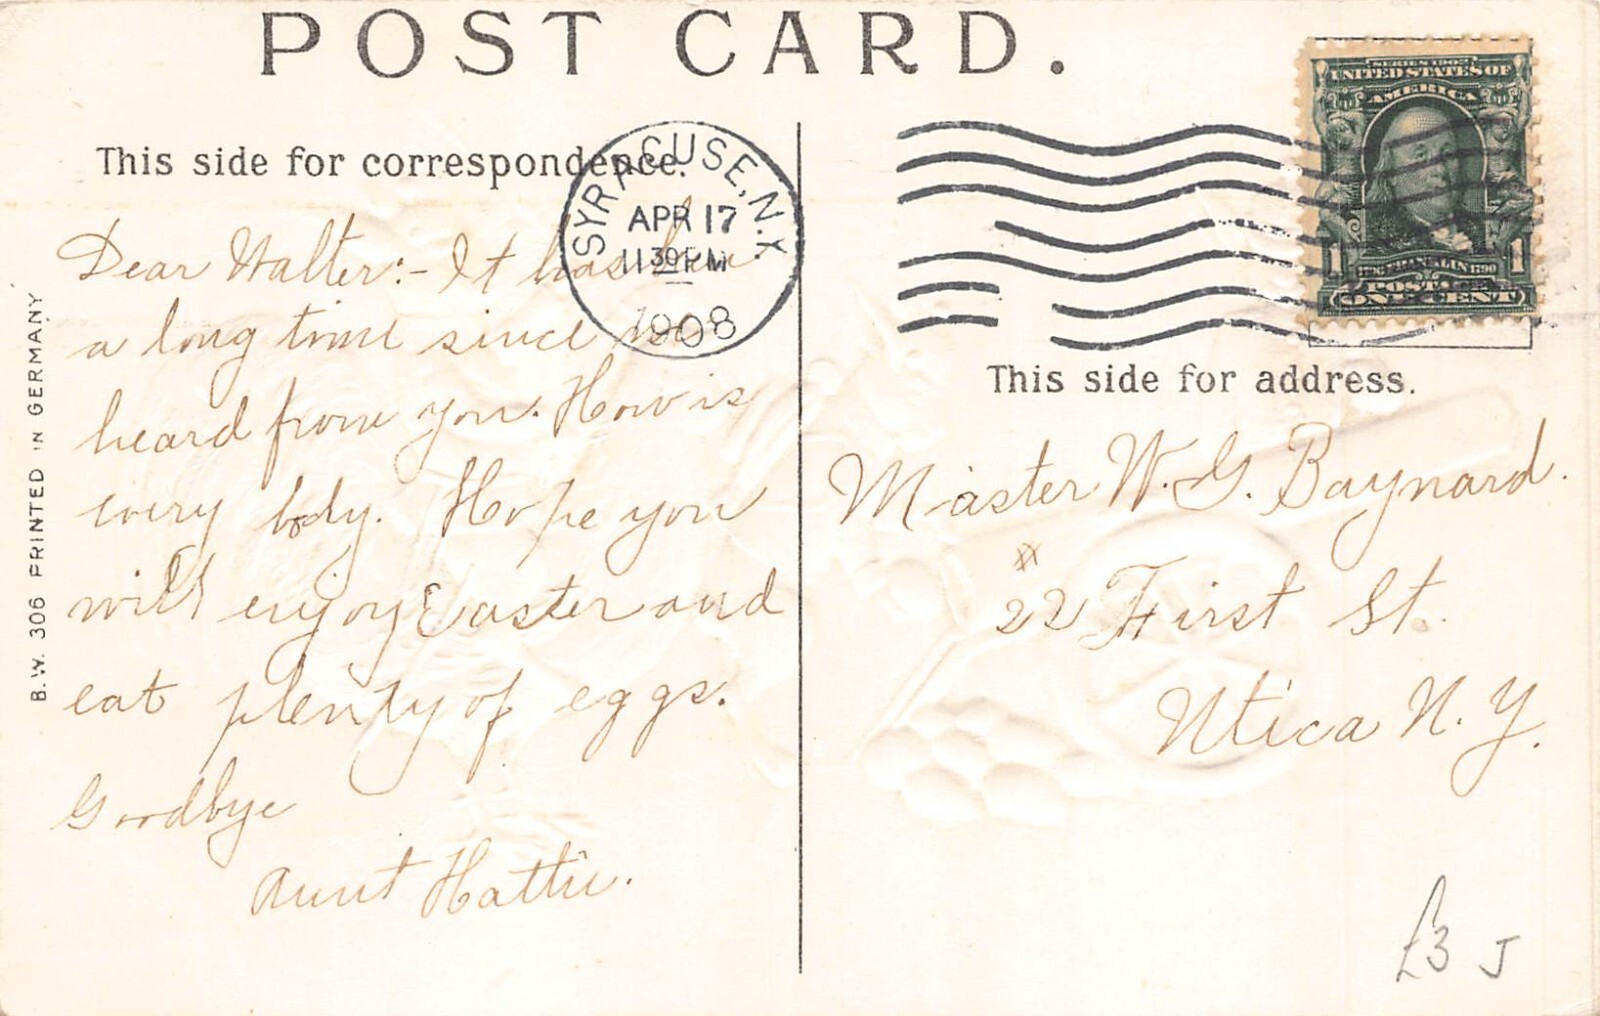 POST CARD.
This side for correspondence.
SYRACUSE, N.Y.
APR 17
11 30 PM
1908
SERIES 1902
UNITED STATES OF
AMERICA
1 1
BENJ. FRANKLIN 1790
POSTAGE
ONE CENT
Dear Walter:- It has been
a long time since we
heard from you. How is
every body. Hope you
will enjoy Easter and
eat plenty of eggs.
Goodbye
Aunt Hattie.
This side for address.
Master W. G. Baynard.
# 22 First St.
Utica N. Y.
B.W. 306 PRINTED IN GERMANY
£3 J